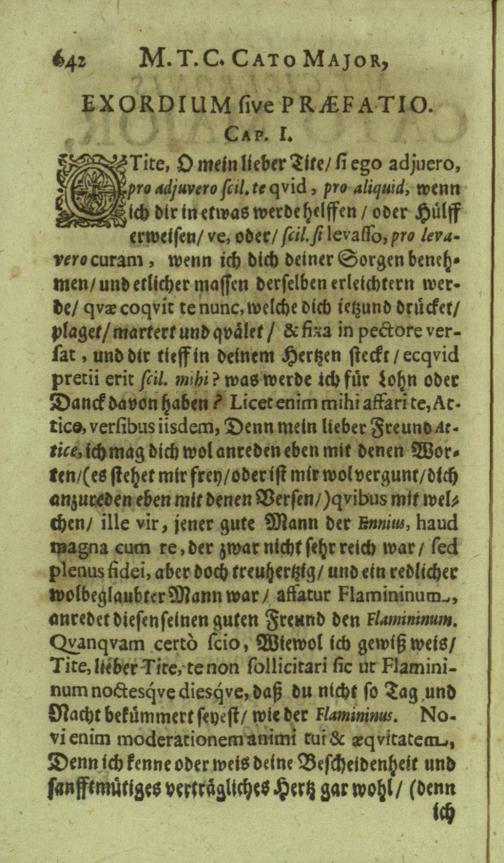 642 M. T. C. CATO MAJOR,
EXORDIUM sive PRÆFATIO.
CAP. I.
OTite, O mein lieber Tite/ si ego adjuero,
pro adjuvero scil. te qvid, pro aliquid, wenn
ich dir in etwas werde helffen/ oder Hülff
erweisen/ ve, oder/ scil. si levasso, pro leva-
vero curam, wenn ich dich deiner Sorgen beneh-
men/ und etlicher massen derselben erleichtern wer-
de/ qvæ coqvit te nunc, welche dich ietzund drücket/
plaget/ martert und qvälet/ & fixa in pectore ver-
sat, und dir tieff in deinem Hertzen steckt/ ecqvid
pretii erit scil. mihi? was werde ich für Lohn oder
Danck davon haben? Licet enim mihi affari te, At-
tice, versibus iisdem, Denn mein lieber Freund At-
tice, ich mag dich wol anreden eben mit denen Wor-
ten/ (es stehet mir frey/ oder ist mir wol vergunt/ dich
anzureden eben mit denen Versen/) qvibus mit wel-
chen/ ille vir, jener gute Mann der Ennius, haud
magna cum re, der zwar nicht sehr reich war/ sed
plenus fidei, aber doch treuhertzig/ und ein redlicher
wolbeglaubter Mann war/ affatur Flamininum,
anredet diesen seinen guten Freund den Flamininum.
Qvanqvam certò scio, Wiewol ich gewiß weis/
Tite, lieber Tite, te non sollicitari sic ut Flamini-
num noctesqve diesqve, daß du nicht so Tag und
Nacht bekümmert seyest/ wie der Flamininus. No-
vi enim moderationem animi tui & æqvitatem,
Denn ich kenne oder weis deine Bescheidenheit und
sanfftmütiges verträgliches Hertz gar wohl/ (denn
ich